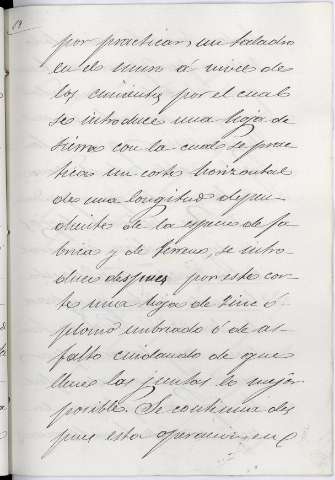 por practicar un taladro
en el muro á nivel de
los cimientos por el cual
se introduce una hoja de
sierra con la cual se prac
tica un corte horizontal
de una longitud depen
diente de la especie de fa
brica y de terreno, se intro
duce despues por este cor
te una hoja de zinc ó
plomo embreado ó de as-
falto cuidando de que
llene las juntas lo mejor
posible. Se continua des
pues esta operacion en